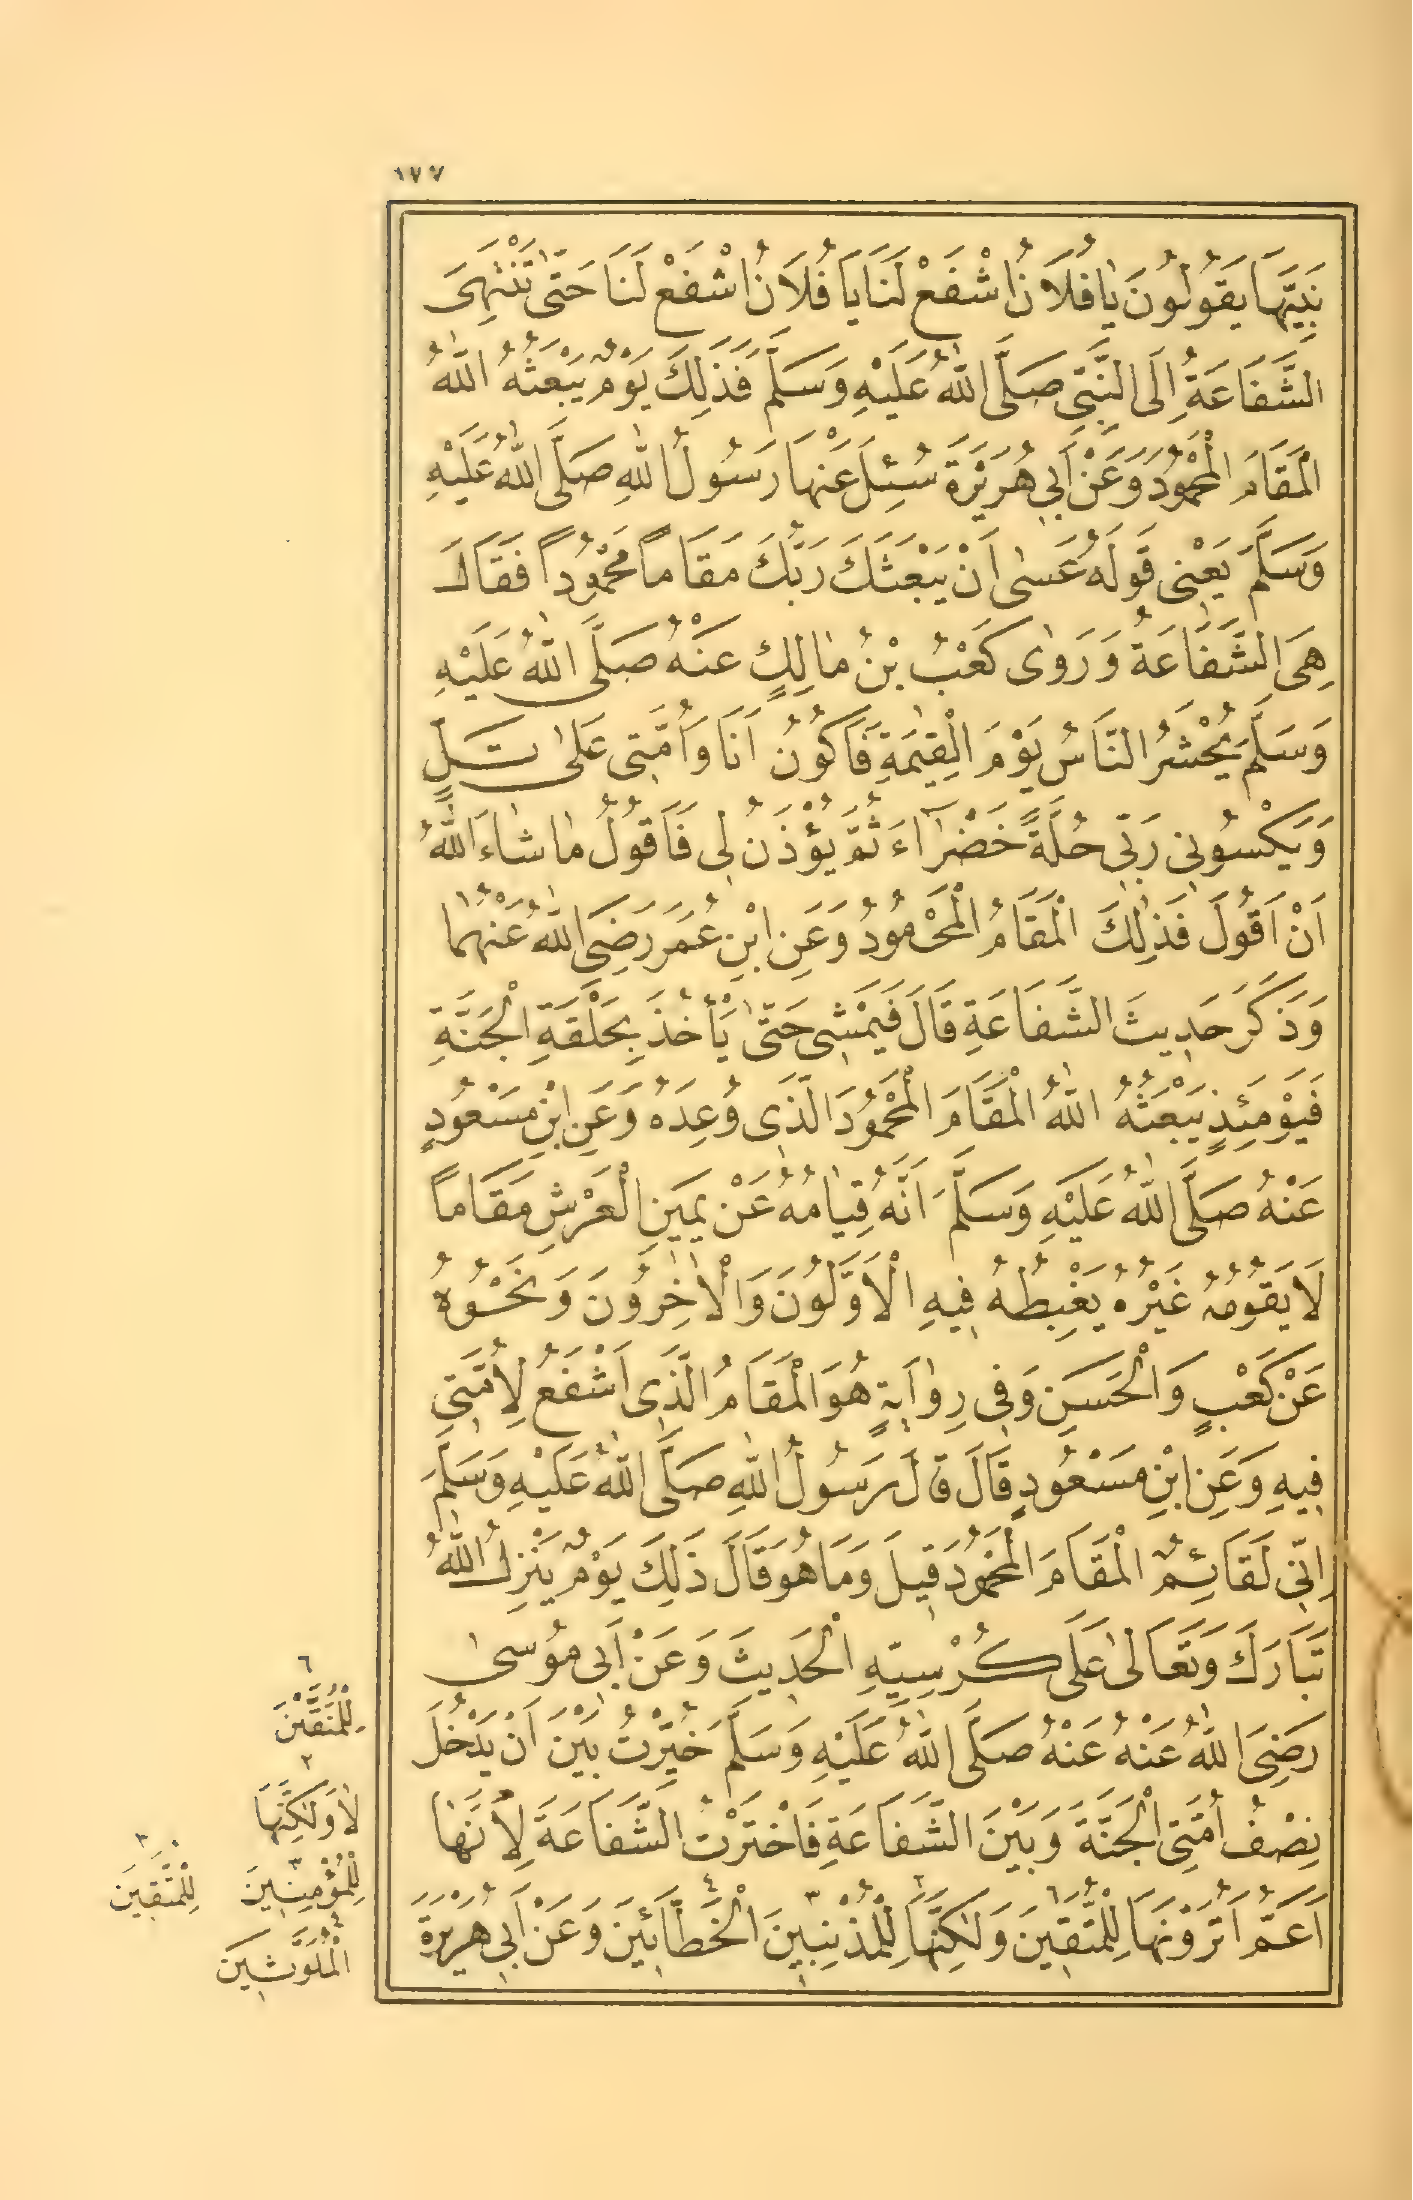 ١٧٧
نَبِيَّهَا يَقُولُونَ يَا فُلَانُ اشْفَعْ لَنَا يَا فُلَانُ اشْفَعْ لَنَا حَتّٰى تَنْتَهِيَ
الشَّفَاعَةُ اِلَى النَّبِيِّ صَلَّى اللّٰهُ عَلَيْهِ وَسَلَّمَ فَذٰلِكَ يَوْمٌ يَبْعَثُهُ اللّٰهُ
الْمَقَامَ الْمَحْمُودَ وَعَنْ اَبِي هُرَيْرَةَ سُئِلَ عَنْهَا رَسُولُ اللّٰهِ صَلَّى اللّٰهُ عَلَيْهِ
وَسَلَّمَ يَعْنِى قَوْلَهُ عَسٰى اَنْ يَبْعَثَكَ رَبُّكَ مَقَامًا مَحْمُودًا فَقَالَ
هِيَ الشَّفَاعَةُ وَرَوٰى كَعْبُ بْنُ مَالِكٍ عَنْهُ صَلَّى اللّٰهُ عَلَيْهِ
وَسَلَّمَ يُحْشَرُ النَّاسُ يَوْمَ الْقِيٰمَةِ فَاَكُونُ اَنَا وَاُمَّتِى عَلٰى تَلٍّ
وَيَكْسُونِى رَبِّى حُلَّةً خَضْرَآءَ ثُمَّ يُؤْذَنُ لِى فَاَقُولُ مَا شَاءَ اللّٰهُ
اَنْ اَقُولَ فَذٰلِكَ الْمَقَامُ الْمَحْمُودُ وَعَنِ ابْنِ عُمَرَ رَضِىَ اللّٰهُ عَنْهُمَا
وَذَكَرَ حَدِيثَ الشَّفَاعَةِ قَالَ فَيَمْشِى حَتّٰى يَأْخُذَ بِحَلْقَةِ الْجَنَّةِ
فَيَوْمَئِذٍ يَبْعَثُهُ اللّٰهُ الْمَقَامَ الْمَحْمُودَ الَّذِى وُعِدَهُ وَعَنِ ابْنِ مَسْعُودٍ
عَنْهُ صَلَّى اللّٰهُ عَلَيْهِ وَسَلَّمَ اَنَّهُ قِيَامُهُ عَنْ يَمِينِ الْعَرْشِ مَقَامًا
لَا يَقُومُهُ غَيْرُهُ يَغْبِطُهُ فِيهِ الْاَوَّلُونَ وَالْاٰخِرُونَ وَنَحْوُهُ
عَنْ كَعْبٍ وَالْحَسَنِ وَفِى رِوَايَةٍ هُوَ الْمَقَامُ الَّذِى اَشْفَعُ لِاُمَّتِى
فِيهِ وَعَنِ ابْنِ مَسْعُودٍ قَالَ قَالَ رَسُولُ اللّٰهِ صَلَّى اللّٰهُ عَلَيْهِ وَسَلَّمَ
اِنِّى لَقَائِمٌ الْمَقَامَ الْمَحْمُودَ قِيلَ وَمَا هُوَ قَالَ ذٰلِكَ يَوْمٌ يَنْزِلُ اللّٰهُ
تَبَارَكَ وَتَعَالٰى عَلَى كُرْسِيِّهِ الْحَدِيثَ وَعَنْ اَبِى مُوسٰى
رَضِىَ اللّٰهُ عَنْهُ عَنْهُ صَلَّى اللّٰهُ عَلَيْهِ وَسَلَّمَ خُيِّرْتُ بَيْنَ اَنْ يَدْخُلَ
نِصْفُ اُمَّتِى الْجَنَّةَ وَبَيْنَ الشَّفَاعَةِ فَاخْتَرْتُ الشَّفَاعَةَ لِاَنَّهَا
اَعَمُّ اَتُرَوْنَهَا لِلْمُتَّقِينَ وَلٰكِنَّهَا لِلْمُذْنِبِينَ الْخَطَّائِينَ وَعَنْ اَبِى هُرَيْرَةَ
٦
لِلْمُنَقَّيْنَ
٢
لَا وَلٰكِنَّهَا
٣
لِلْمُؤْمِنِينَ لِلْمُتَّقِينَ
٤
الْمُلَوَّثِينَ